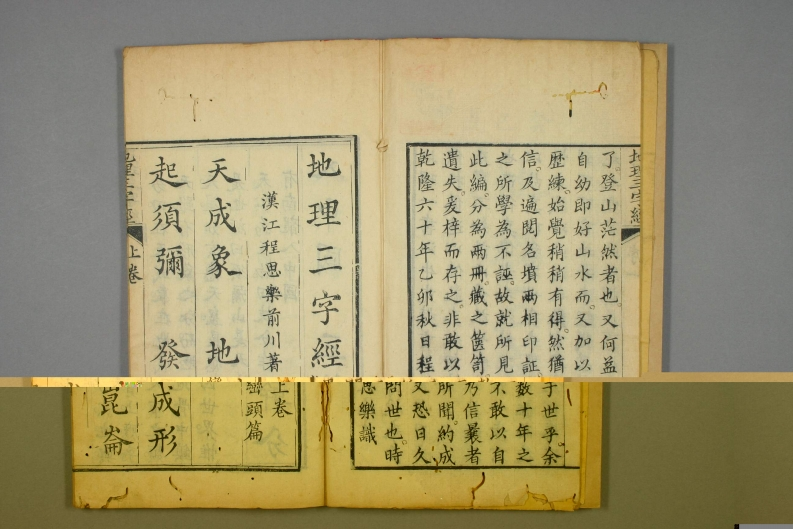 地理三字經
了。登山茫然者也。又何益于世乎。余
自幼即好山水。而又加以數十年之
歷練。始覺稍稍有得。然猶不敢以自
信。及遍閱名墳。兩相印証。乃信曩者
之所學為不誣。故就所見所聞。約成
此編。分為兩冊。藏之篋笥。又恐日久
遺失。爰梓而存之。非敢以問世也。時
乾隆六十年乙卯秋日程思樂識
地理三字經上卷
巒頭篇
漢江程思樂前川著
天成象 地成形
起須彌 發崑崙
地理三字經 上卷